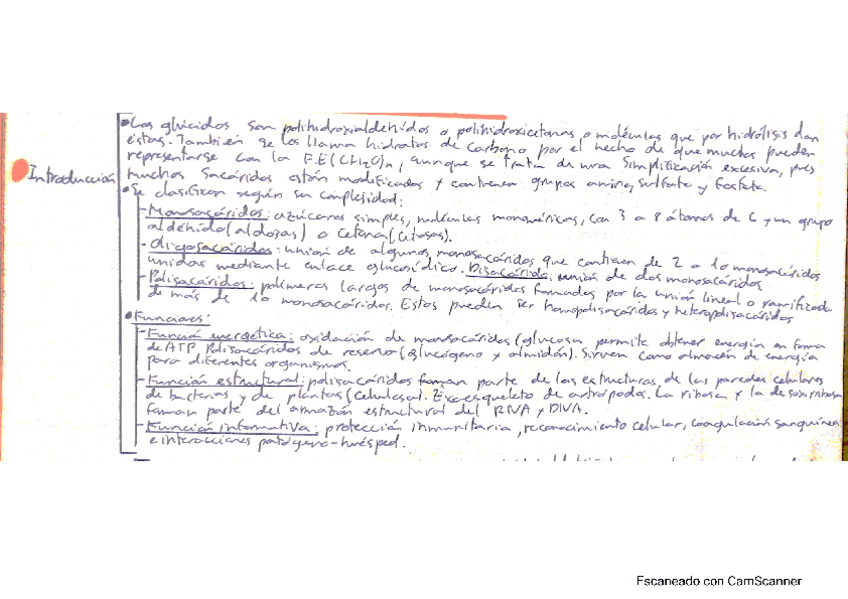 Introducción
•Los glúcidos son polihidroxialdehídos o polihidroxicetonas, o moléculas que por hidrólisis dan
éstas. También se los llama hidratos de carbono por el hecho de que muchos pueden
representarse con la F.E(CH2O)n, aunque se trata de una simplificación excesiva, pues
muchos sacáridos están modificados y contienen grupos amino, sulfato y fosfato.
•Se clasifican según su complejidad:
-Monosacáridos: azúcares simples, moléculas monoméricas, con 3 a 8 átomos de C y un grupo
aldehído(aldozas) o cetona(cetosas).
-Oligosacáridos: unión de algunos monosacáridos que contienen de 2 a 10 monosacáridos
unidas mediante enlace glucosídico. Disacárido: unión de dos monosacáridos
-Polisacáridos: polímeros largos de monosacáridos formados por la unión lineal o ramificada
de más de 10 monosacáridos. Estos pueden ser homopolisacáridos y heteropolisacáridos
•Funciones:
-Función energética: oxidación de monosacáridos(glucosa permite obtener energía en forma
de ATP. Polisacáridos de reserva(glucógeno y almidón). Sirven como almacén de energía
para diferentes organismos.
-Función estructural: polisacáridos forman parte de las estructuras de las paredes celulares
de bacterias y de plantas(celulosa). Exoesqueleto de artrópodos. La ribosa y la desoxirribosa
forman parte del armazón estructural del RNA y DNA.
-Función informativa: protección inmunitaria, reconocimiento celular, coagulación sanguínea
e interacciones patógeno-huésped.
Escaneado con CamScanner